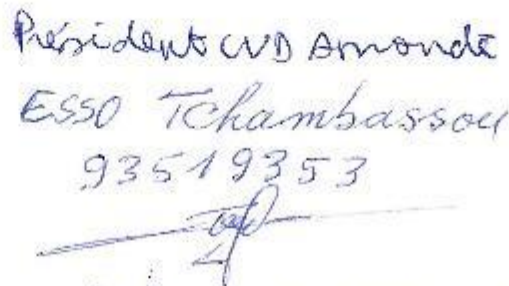 Président CVD Amondè
ESSO Tchambassou
93519353